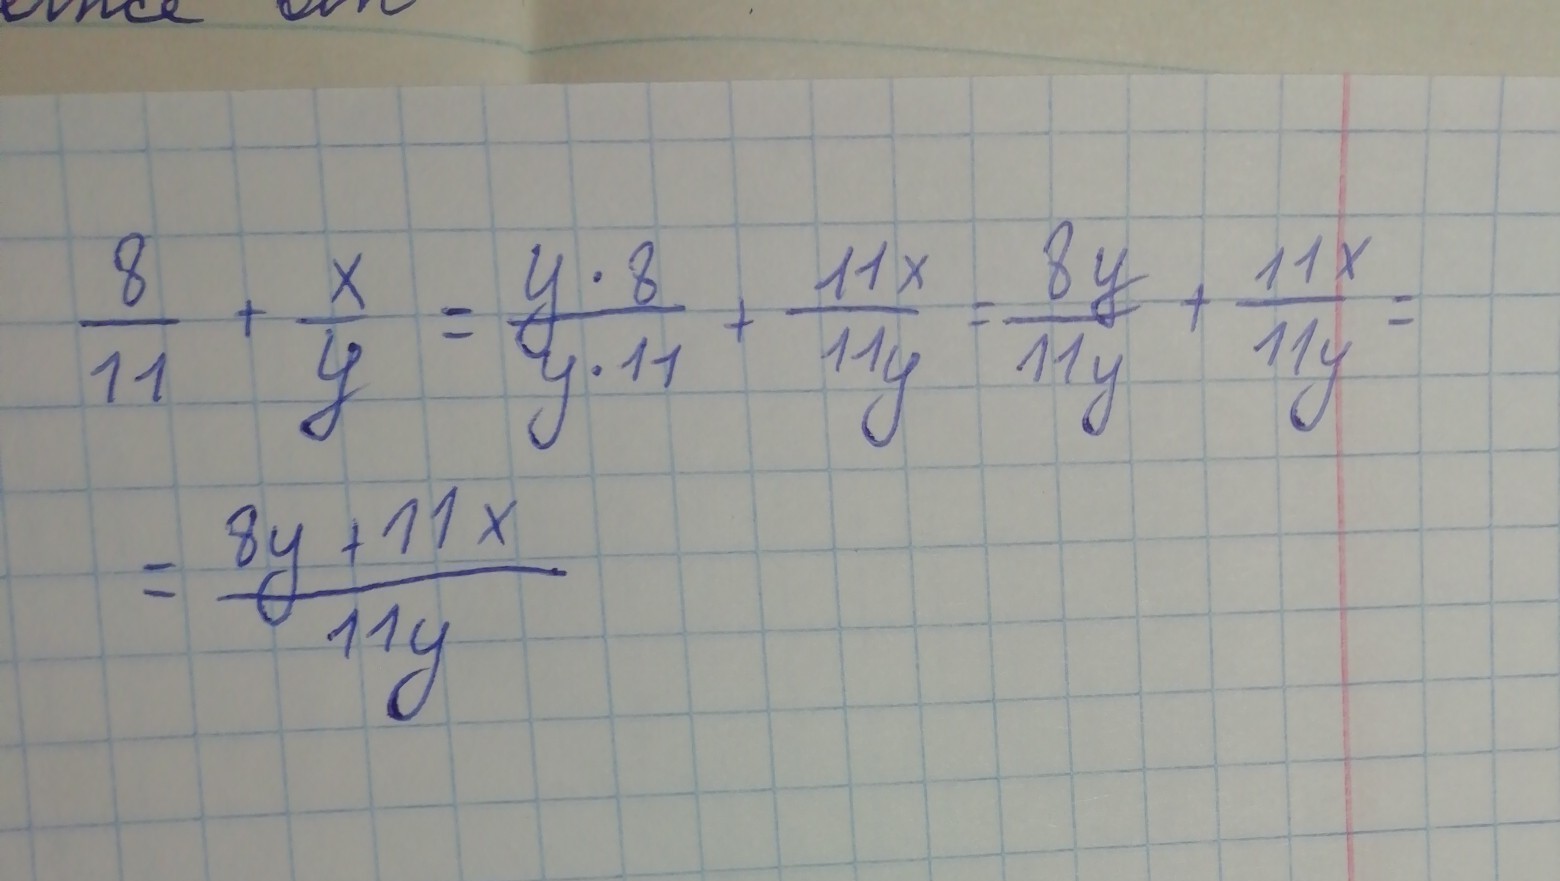 8/11 + x/y = y·8/y·11 + 11x/11y = 8y/11y + 11x/11y =
= 8y+11x/11y